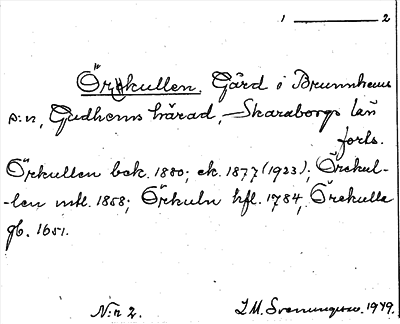 1 — 2
Örekullen. Gård i Brunnhems
s:n, Gudhems härad, Skaraborgs län
forts.
Örkullen bek. 1880; ek. 1877 (1923); Örekul-
-len mtl. 1858; Örkuln hfl. 1784, Örekulla
gb. 1651.
N:r 2. I.M. Svenungsson. 1949.